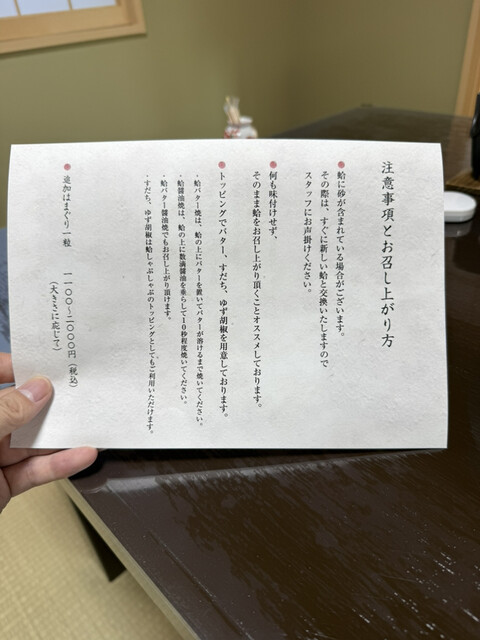 注意事項とお召し上がり方
蛤に砂が含まれている場合がございます。
その際は、すぐに新しい蛤と交換いたしますので
スタッフにお声掛けください。
何も味付けせず、
そのまま蛤をお召し上がり頂くことオススメしております。
トッピングでバター、すだち、ゆず胡椒を用意しております。
・蛤バター焼は、蛤の上にバターを置いてバターが溶けるまで焼いてください。
・蛤醤油焼は、蛤の上に数滴醤油を垂らして10秒程度焼いてください。
・蛤バター醤油焼でもお召し上がり頂けます。
・すだち、ゆず胡椒は蛤しゃぶしゃぶのトッピングとしてもご利用いただけます。
追加はまぐり一粒 一一〇〇〜二〇〇〇円（税込）
（大きさに応じて）